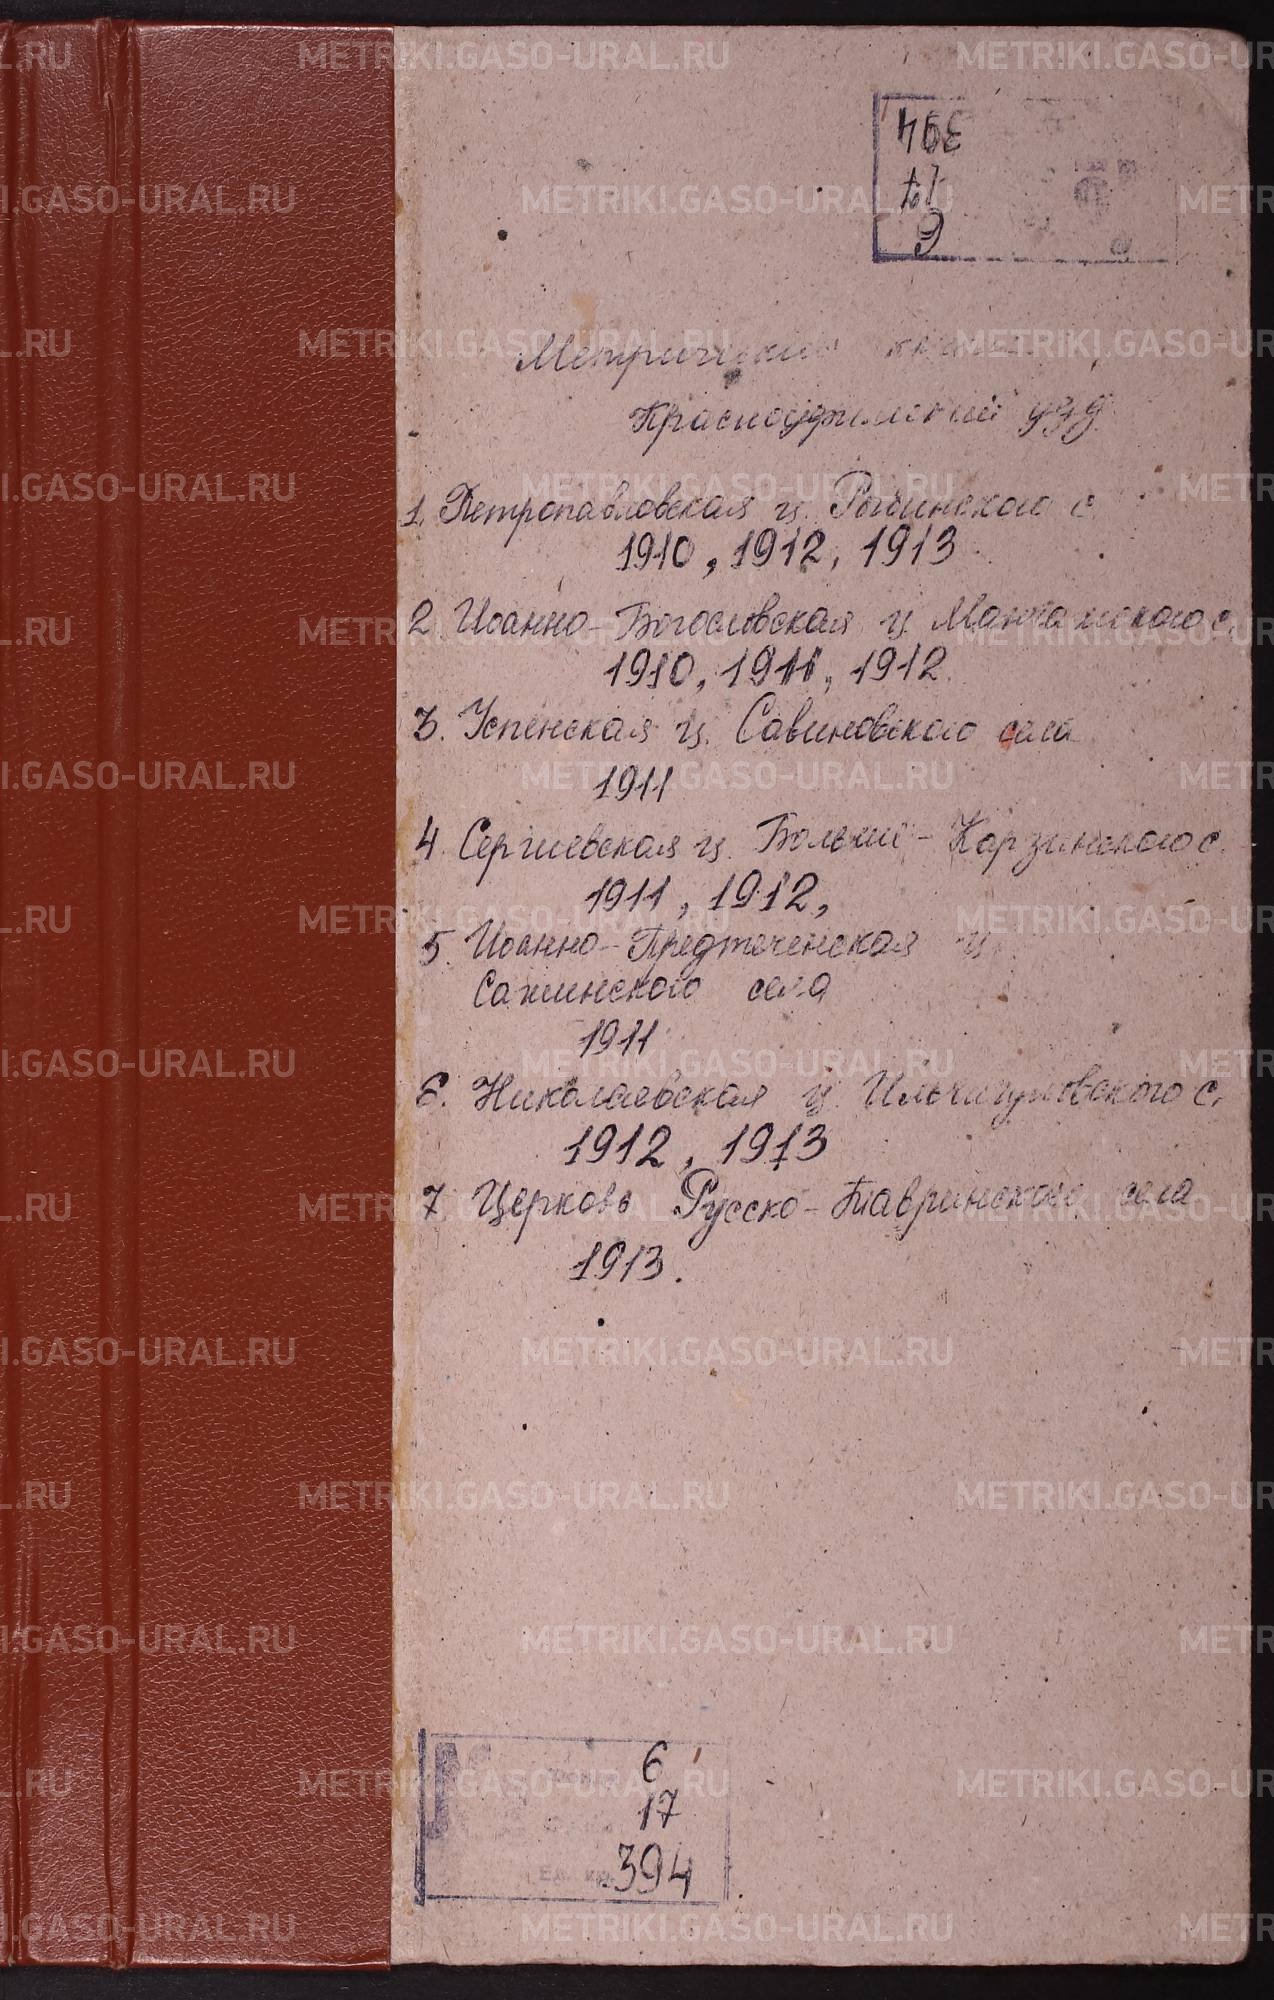 394
17
6
Метрические книги
Красноуфимский уезд
1. Петропавловская ц. Рыбинского с.
1910, 1912, 1913
2. Иоанно-Богословская ц. с.
1910, 1911, 1912.
3. Успенская ц. Савиновского села
1911
4. Сергиевская ц. Больше-Карзинского с.
1911, 1912,
5. Иоанно-Предтеченская ц.
Сажинского села
1911
6. Николаевская ц. с.
1912, 1913
7. Церковь Русско-Тавринского села
1913.
6
17
Ед. хр. 394
METRIKI.GASO-URAL.RU